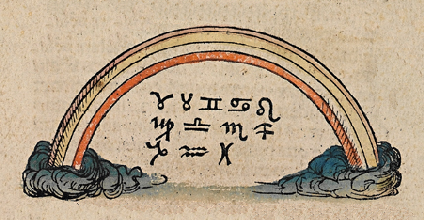 ♈︎ ♉︎ ♊︎ ♋︎ ♌︎
♍︎ ♎︎ ♏︎ ♐︎
♑︎ ♒︎ ♓︎